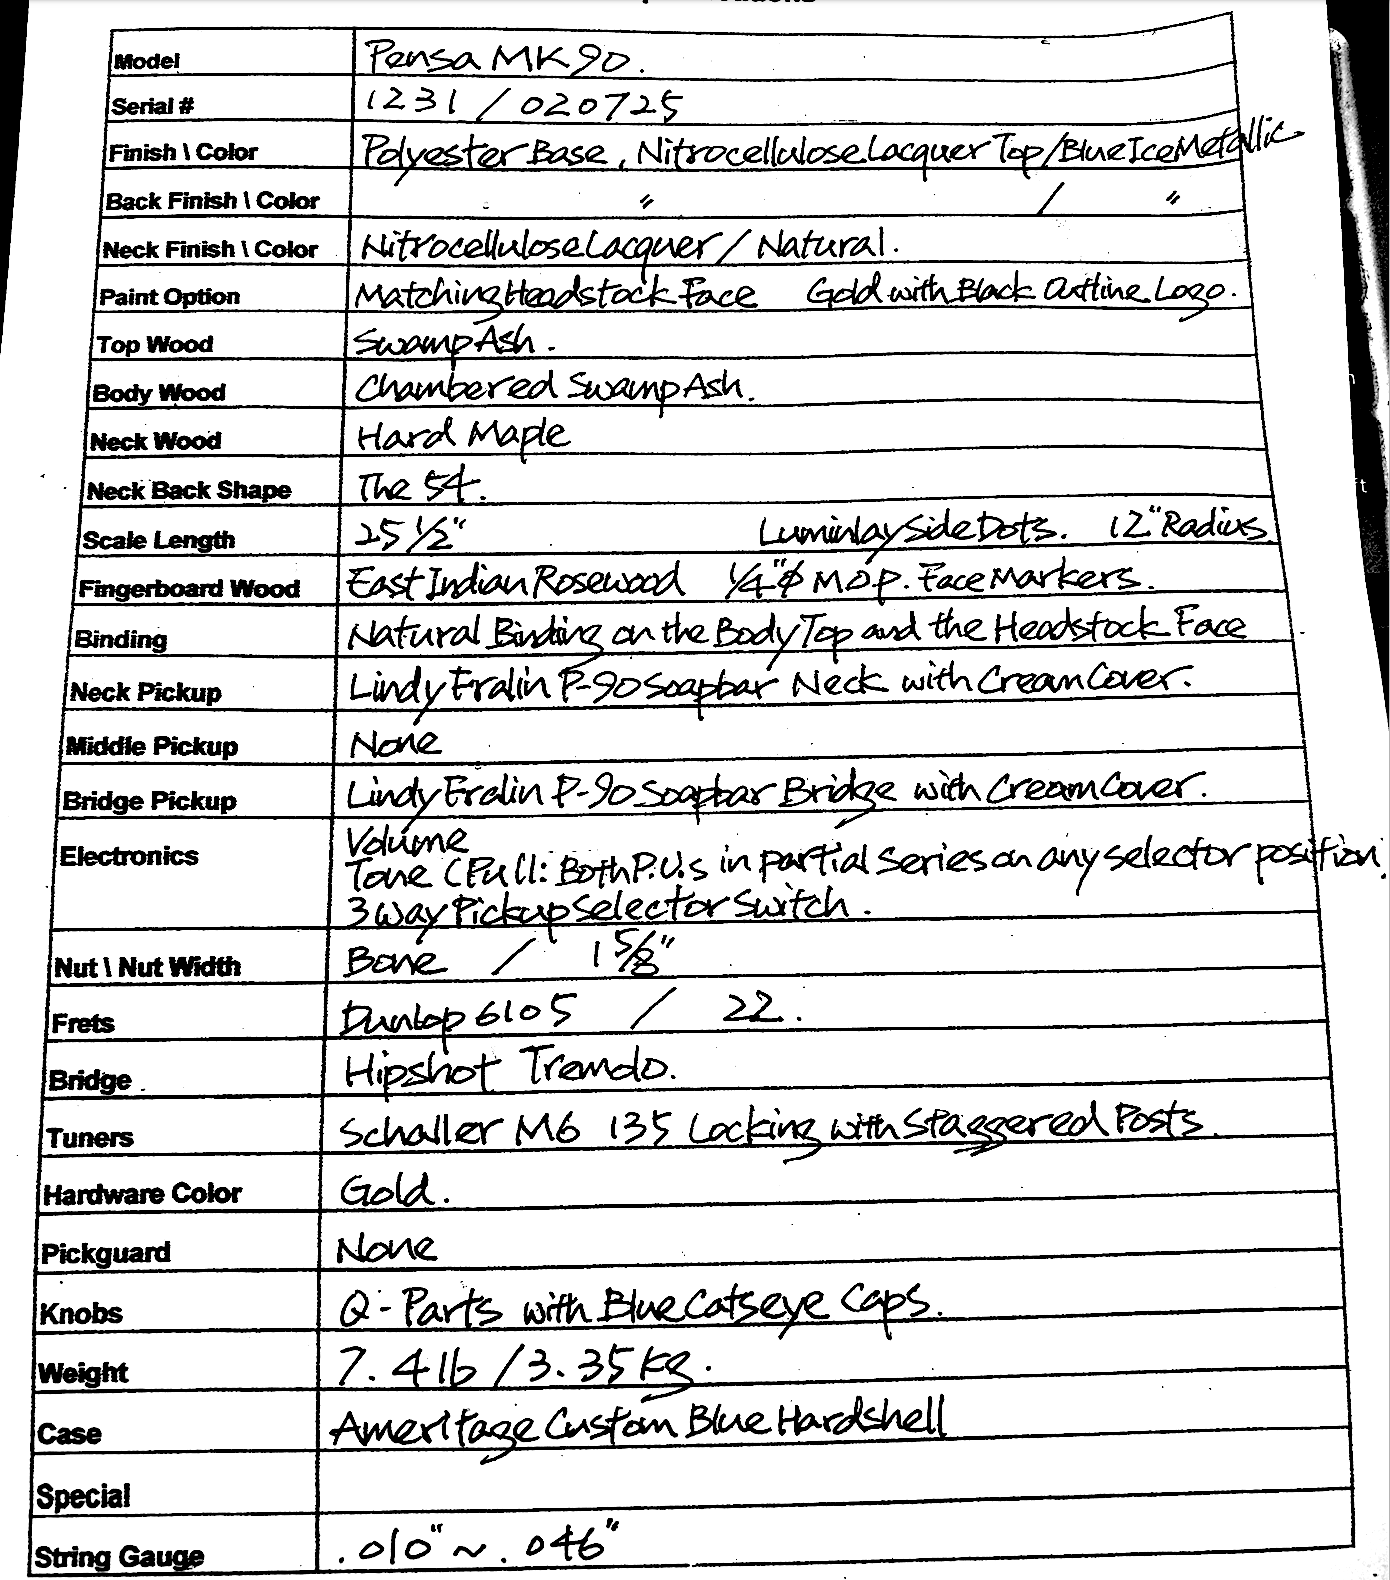 Model Pensa MK90.
Serial # 1231 / 020725
Finish \ Color Polyester Base, Nitrocellulose Lacquer Top/Blue Ice Metallic
Back Finish \ Color " / "
Neck Finish \ Color Nitrocellulose Lacquer / Natural.
Paint Option Matching Headstock Face Gold with Black Outline Logo.
Top Wood Swamp Ash.
Body Wood Chambered Swamp Ash.
Neck Wood Hard Maple
Neck Back Shape The 54.
Scale Length 25 1/2" Luminlay Side Dots. 12" Radius
Fingerboard Wood East Indian Rosewood 1/4"ø M.O.P. Face Markers.
Binding Natural Binding on the Body Top and the Headstock Face
Neck Pickup Lindy Fralin P-90 Soapbar Neck with Cream Cover.
Middle Pickup None
Bridge Pickup Lindy Fralin P-90 Soapbar Bridge with Cream Cover.
Electronics Volume
Tone (Pull: Both P.U.s in partial series on any selector position.
3 way Pickup Selector Switch.
Nut \ Nut Width Bone / 1 5/8"
Frets Dunlop 6105 / 22.
Bridge Hipshot Tremolo.
Tuners Schaller M6 135 Locking with Staggered Posts.
Hardware Color Gold.
Pickguard None
Knobs Q-Parts with Blue Catseye Caps.
Weight 7.4 lb / 3.35 kg.
Case Ameritage Custom Blue Hardshell
Special
String Gauge .010" ~ .046"